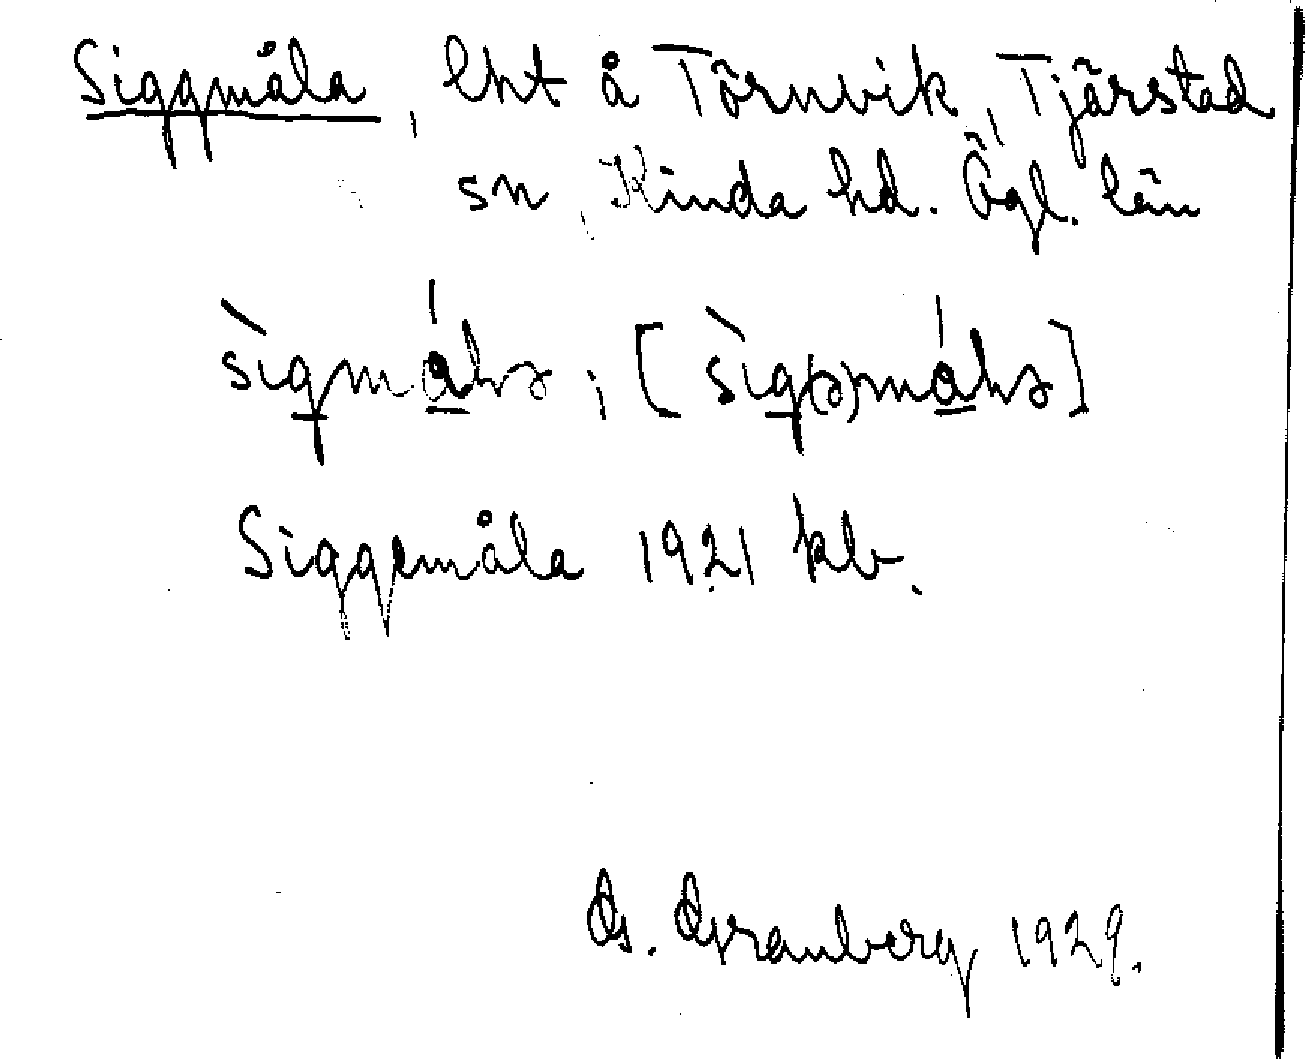 Siggmåla, lht å Törnvik, Tjärstad
sn, Kinda hd. Ögl. län
sìgmálɘ; [sìg(ə)málɘ]
Siggemåla 1921 kb.
G. Granberg 1929.